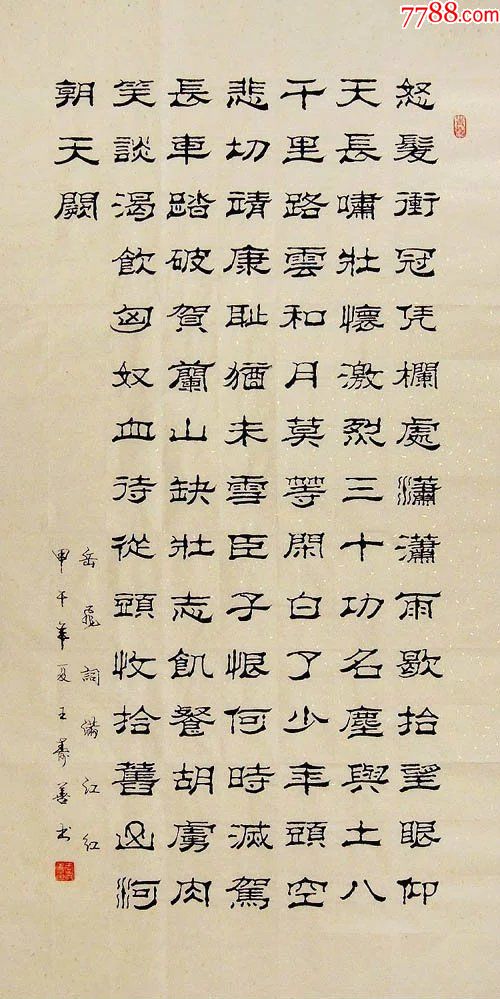 7788.com
怒髮衝冠凭欄處瀟瀟雨歇抬望眼仰
天長嘯壯懷激烈三十功名塵與土八
千里路雲和月莫等閑白了少年頭空
悲切靖康耻猶未雪臣子恨何時滅駕
長車踏破賀蘭山缺壯志飢餐胡虜肉
笑談渴飲匈奴血待從頭收拾舊山河
朝天闕
岳飛詞滿江紅
甲午年夏王壽善书